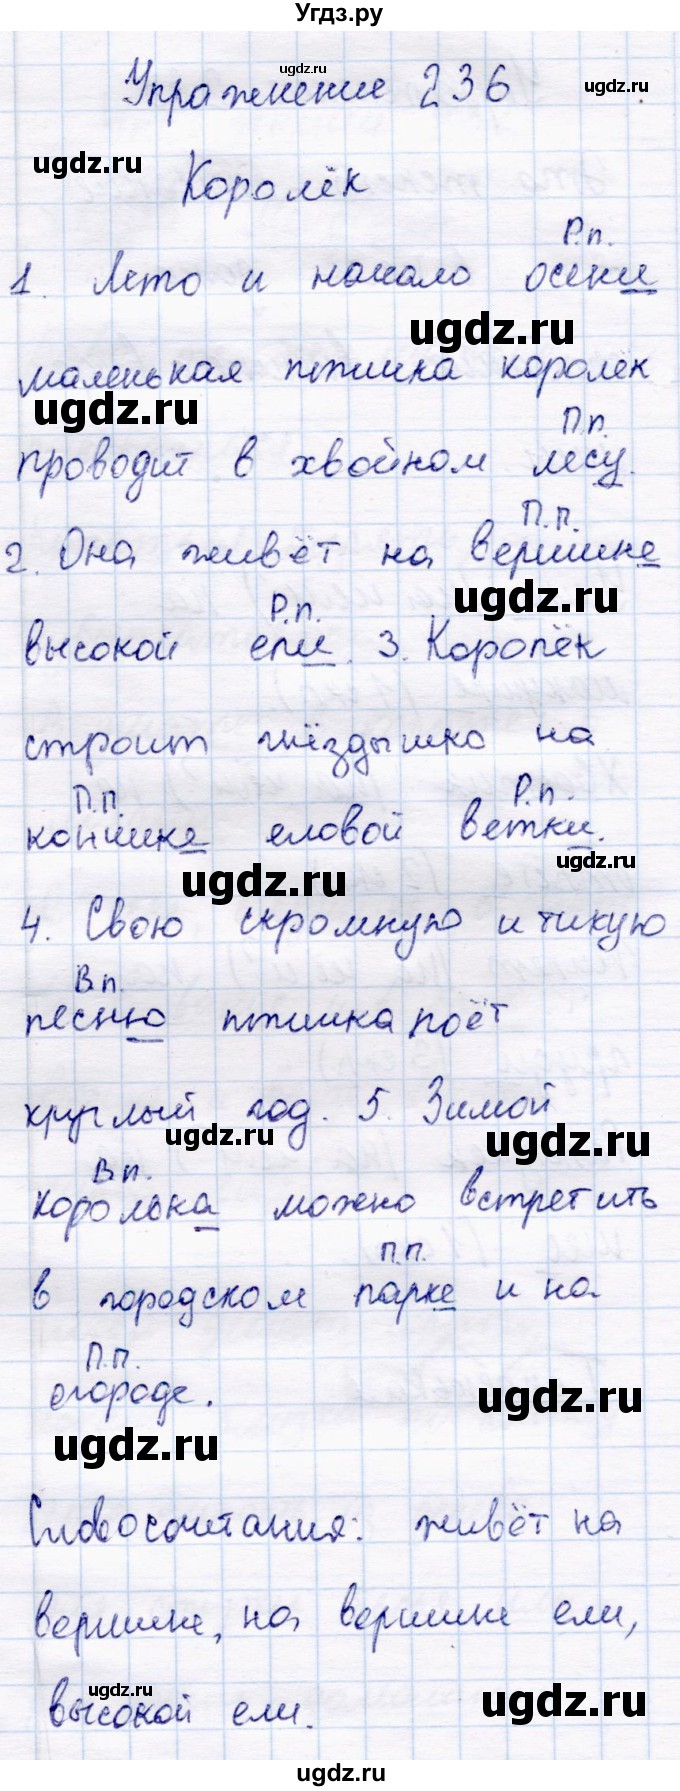 Угдз.ру
ugdz.ru
Упражнение 236
ugdz.ru
ugdz.ru
Королёк
Р.п.
1. Лето и начало осени
ugdz.ru
маленькая птишка королёк
ugdz.ru
П.п.
проводит в хвойном лесу.
П.п.
2. Она живёт на вершине
ugdz.ru
Р.п.
высокой ели. 3. Королёк
строит гнёздышко на
П.п. Р.п.
кончике еловой ветки.
ugdz.ru
ugdz.ru
4. Свою скромную и тихую
В.п.
песню птишка поёт
круглый год. 5. Зимой
ugdz.ru
ugdz.ru
В.п.
королька можно встретить
П.п.
в городском парке и на
П.п.
огороде.
ugdz.ru
ugdz.ru
Словосочетания: живёт на
вершине, на вершине ели,
ugdz.ru
высокой ели.
ugdz.ru
ugdz.ru